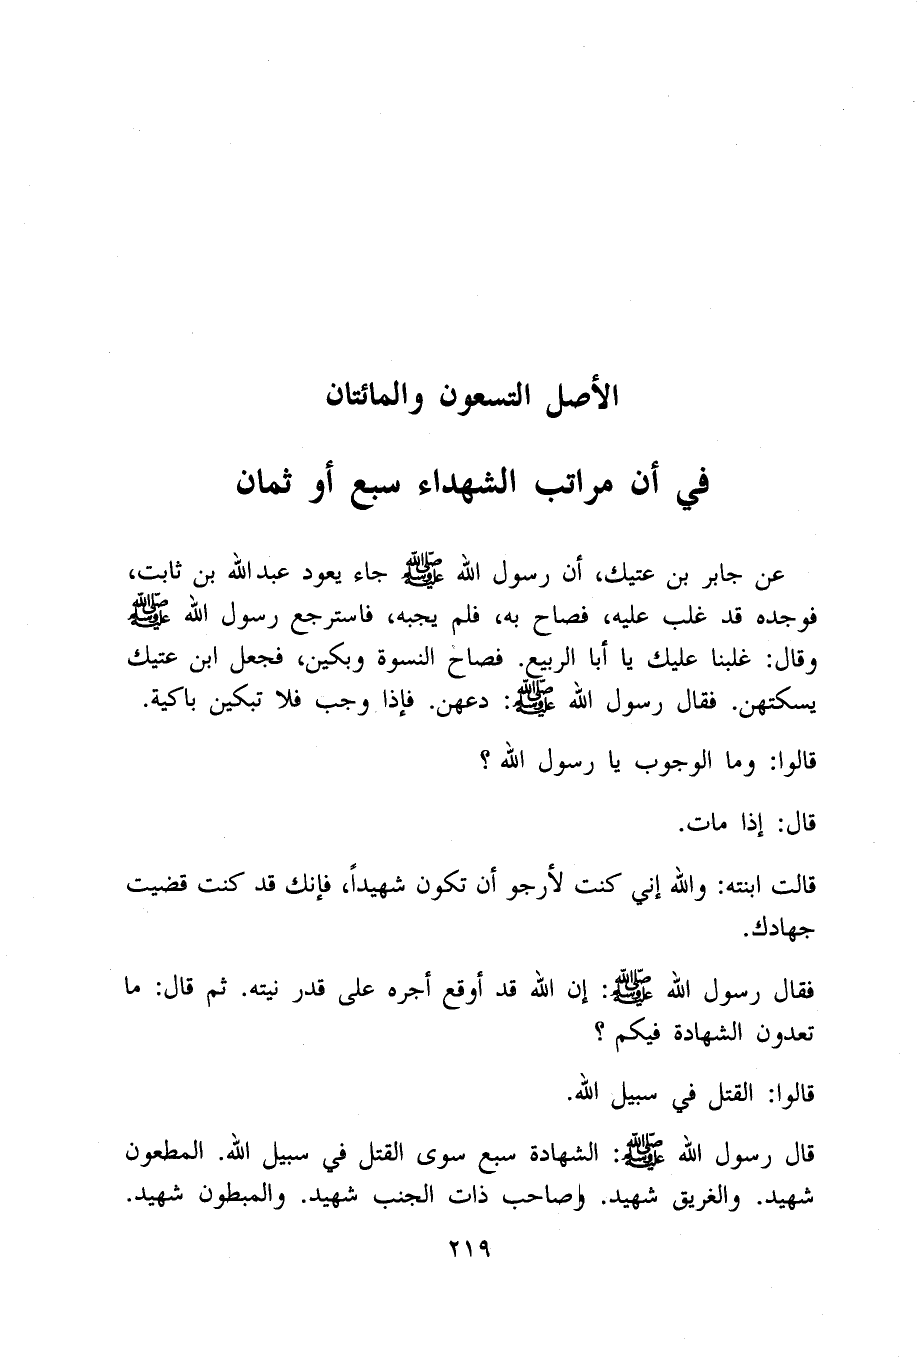 الأصل التسعون والمائتان
في أن مراتب الشهداء سبع أو ثمان
عن جابر بن عتيك، أن رسول الله ﷺ جاء يعود عبدالله بن ثابت،
فوجده قد غلب عليه، فصاح به، فلم يجبه، فاسترجع رسول الله ﷺ
وقال: غلبنا عليك يا أبا الربيع. فصاح النسوة وبكين، فجعل ابن عتيك
يسكتهن. فقال رسول الله ﷺ: دعهن. فإذا وجب فلا تبكين باكية.
قالوا: وما الوجوب يا رسول الله ؟
قال: إذا مات.
قالت ابنته: والله إني كنت لأرجو أن تكون شهيداً، فإنك قد كنت قضيت
جهادك.
فقال رسول الله ﷺ: إن الله قد أوقع أجره على قدر نيته. ثم قال: ما
تعدون الشهادة فيكم ؟
قالوا: القتل في سبيل الله.
قال رسول الله ﷺ: الشهادة سبع سوى القتل في سبيل الله. المطعون
شهيد. والغريق شهيد. وصاحب ذات الجنب شهيد. والمبطون شهيد.
٢١٩